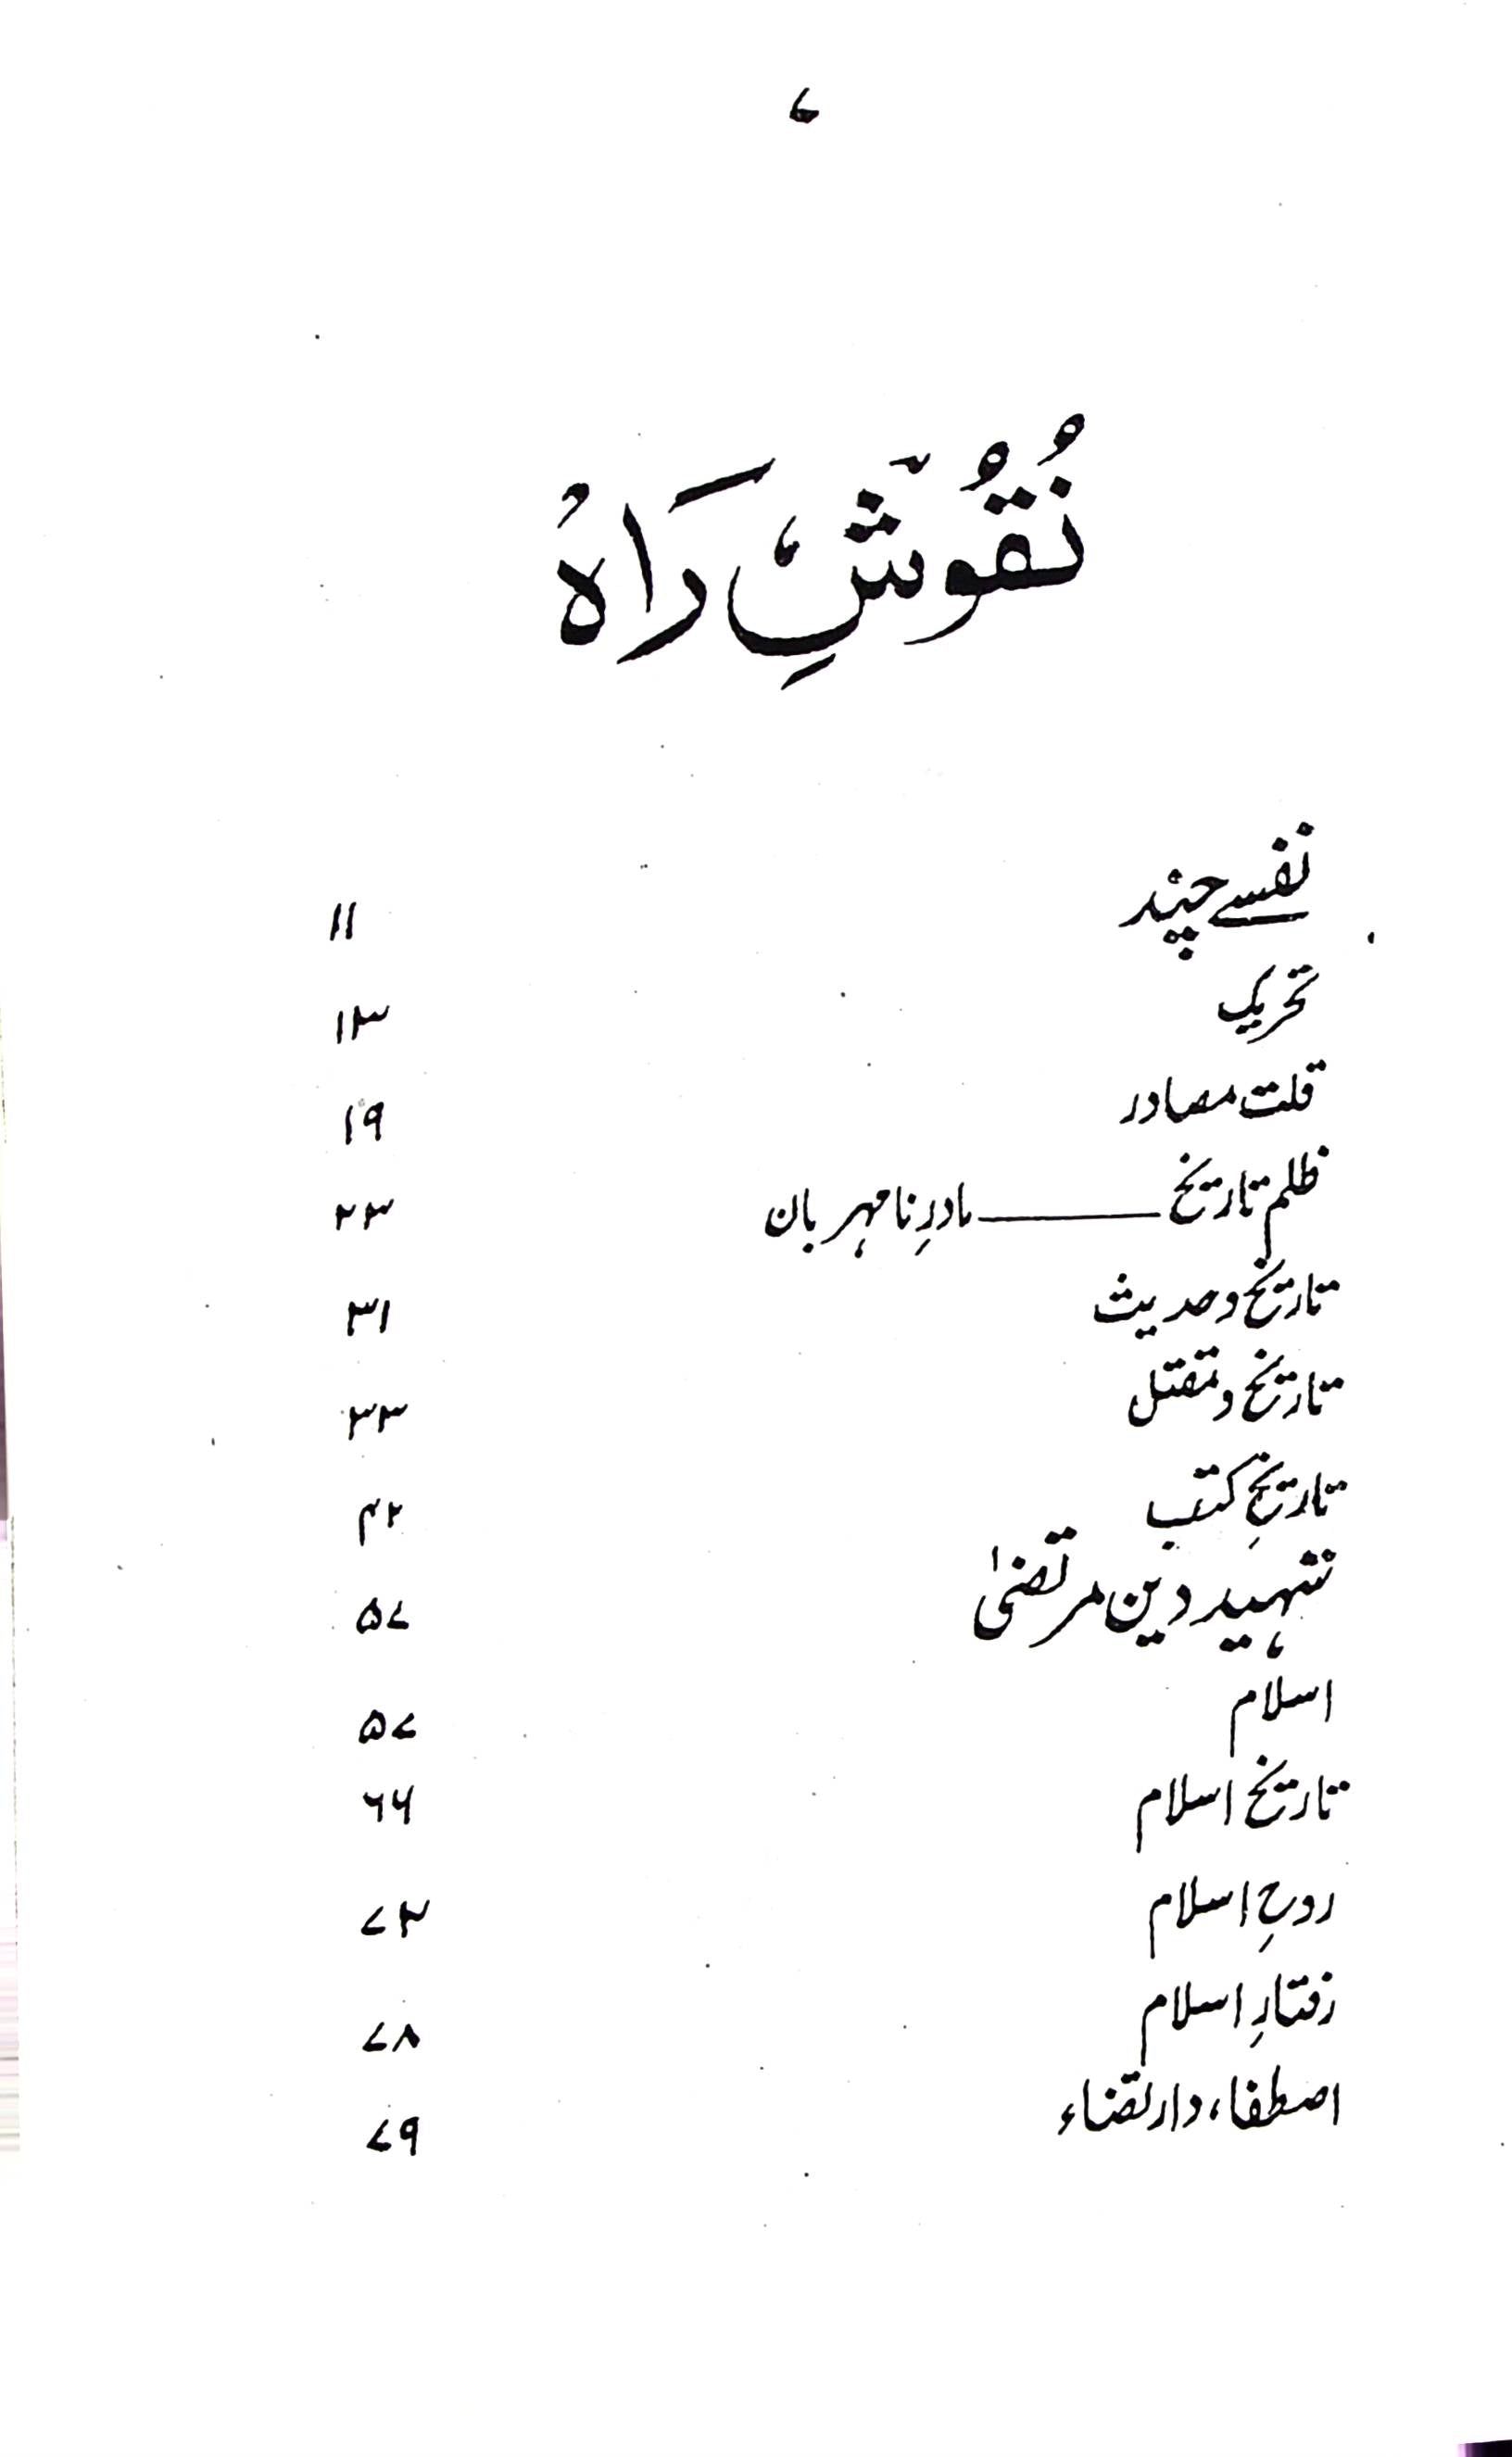 ۷
نُقُوشِ رَاہ
نفسے چند ۱۱
تحریک ۱۳
قلت مصادر ۱۹
ظلم تاریخ ــــــــ مادرِ نامہربان ۲۳
تاریخ و حدیث ۳۱
تاریخ و مقتل ۳۳
تاریخِ کتب ۴۲
شہید دین مرتضیٰ ۵۷
اسلام ۵۷
تاریخ اسلام ۶۶
روحِ اسلام ۷۲
رفتارِ اسلام ۷۸
اصطفاء، وارتضاء ۷۹